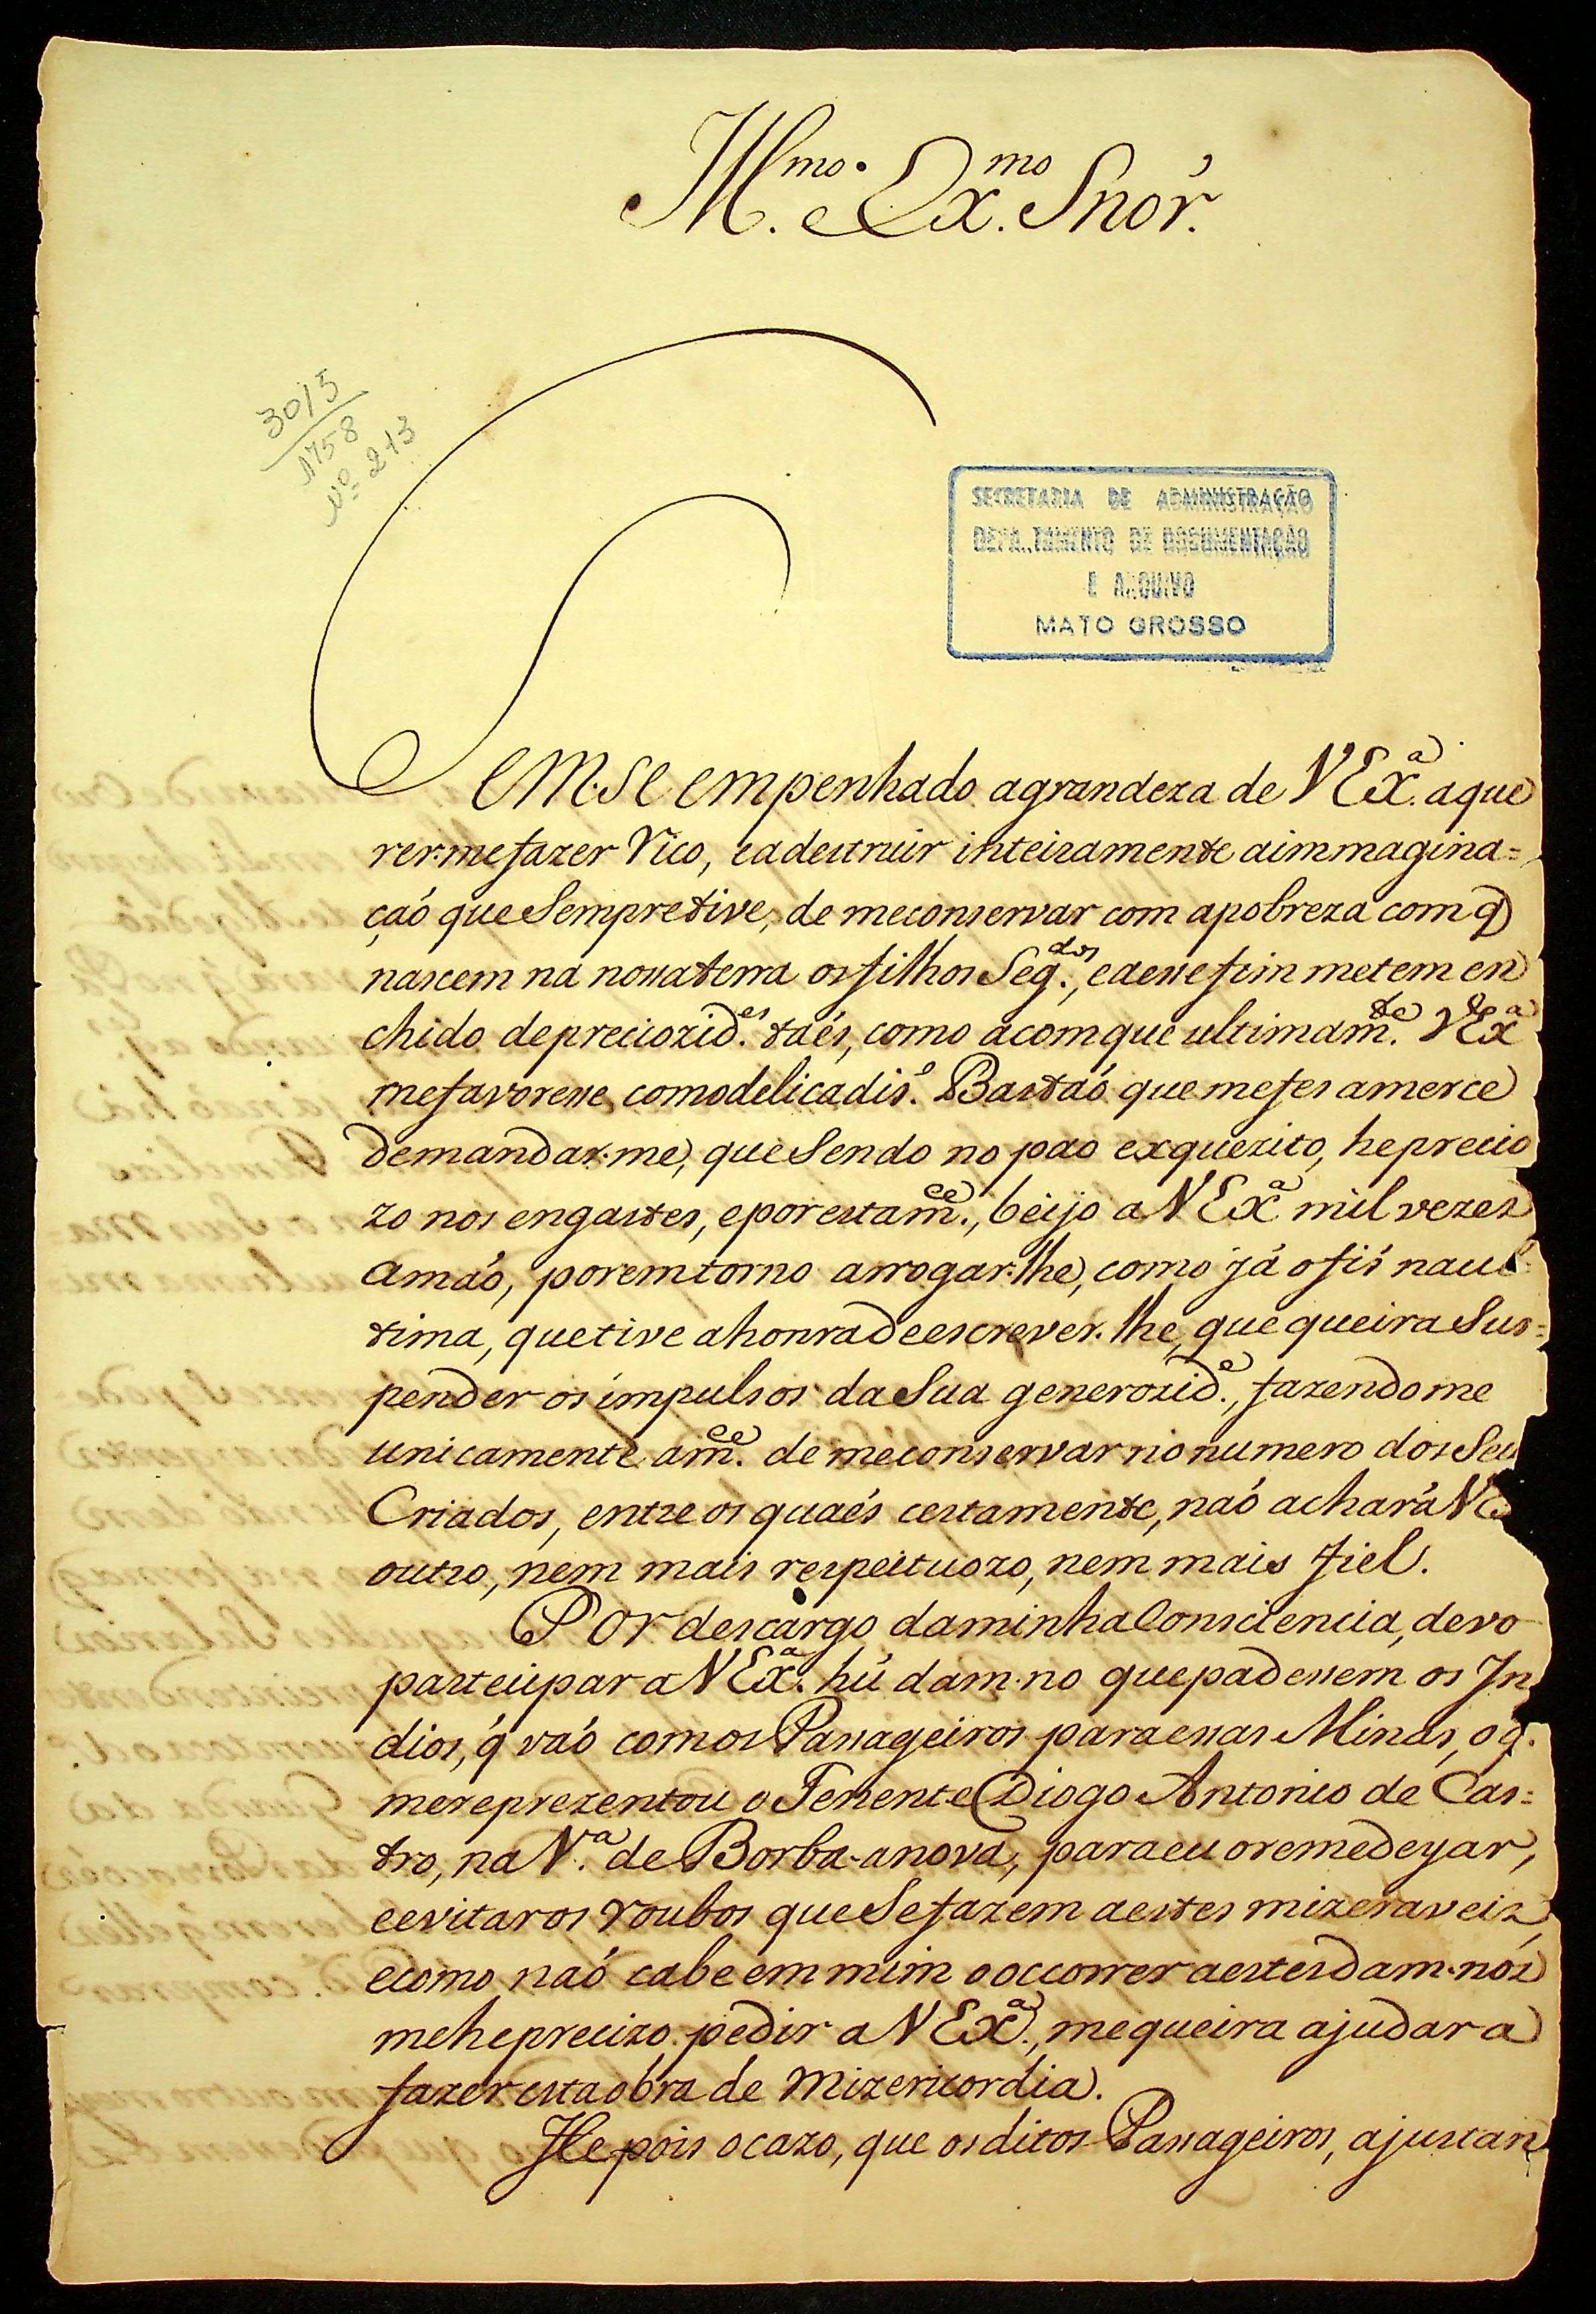 Ill.mo e Ex.mo Snór.
3015
1758
Nº 213
SECRETARIA DE ADMINISTRAÇÃO
DEPARTAMENTO DE DOCUMENTAÇÃO
E ARQUIVO
MATO GROSSO
Tem-se empenhado a grandeza de VEx.a a que
rer-me fazer rico, e a destruir inteiramente a immagina=
çaó que Sempre tive, de me conservar com a pobreza com q
nascem na nossa terra os filhos Seg.dos, e a esse fim me tem en
chido de preciozid.es taés, como a com que ultimam.te VEx.a
me favoresse, com o delicadis.o Bastaó que me fes a merce
de mandar-me, que Sendo no pao exquezito, he precio
zo nos engastes, e por esta m.ce, beijo a VEx.a mil vezes
a máo, porem torno a rrogar-lhe, como já o fis na ul
tima, que tive a honra de escrever-lhe, que queira Sus=
pender os impulsos da Sua generozid.e, fazendo me
unicamente a m.ce de me conservar no numero dos Seu
Criados, entre os quaés certamente, naó achará VE
outro, nem mais respeituozo, nem mais fiel.
Por descargo da minha Consciencia, devo
partecipar a VEx.a hú dam-no que padessem os In
dios, q́ vaó com os Passageiros para essas Minas, o q.
me reprezentou o Tenente Diogo Antonio de Cas=
tro, na V.a de Borba-a nova, para eu o remedeyar,
e evitar os roubos que Se fazem a estes mizeraveis,
e como naó cabe em mim o occorrer a estes dam-nós
me he precizo pedir a VEx.a, me queira ajudar a
fazer esta obra de Mizericordia.
He pois o cazo, que os ditos Passageiros, ajustan